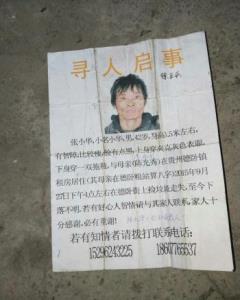 寻人启事
张小华,小名小华,男,42岁,身高1.5米左右,
有智障,比较瘦,脸有点黑,上身穿夹克灰色衣服,
下身穿一双拖鞋,与母亲(陈光秀)在贵州德卧镇
租房居住(其母亲在德卧粮站第八)2015年9月
27日下午4点左右在德卧街上捡垃圾走失,至今下
落不明,若有好心人智情请与其家人联系,家人十
分感谢,必有重谢!
若有知情者请拨打联系电话:
15296243225 18607765537